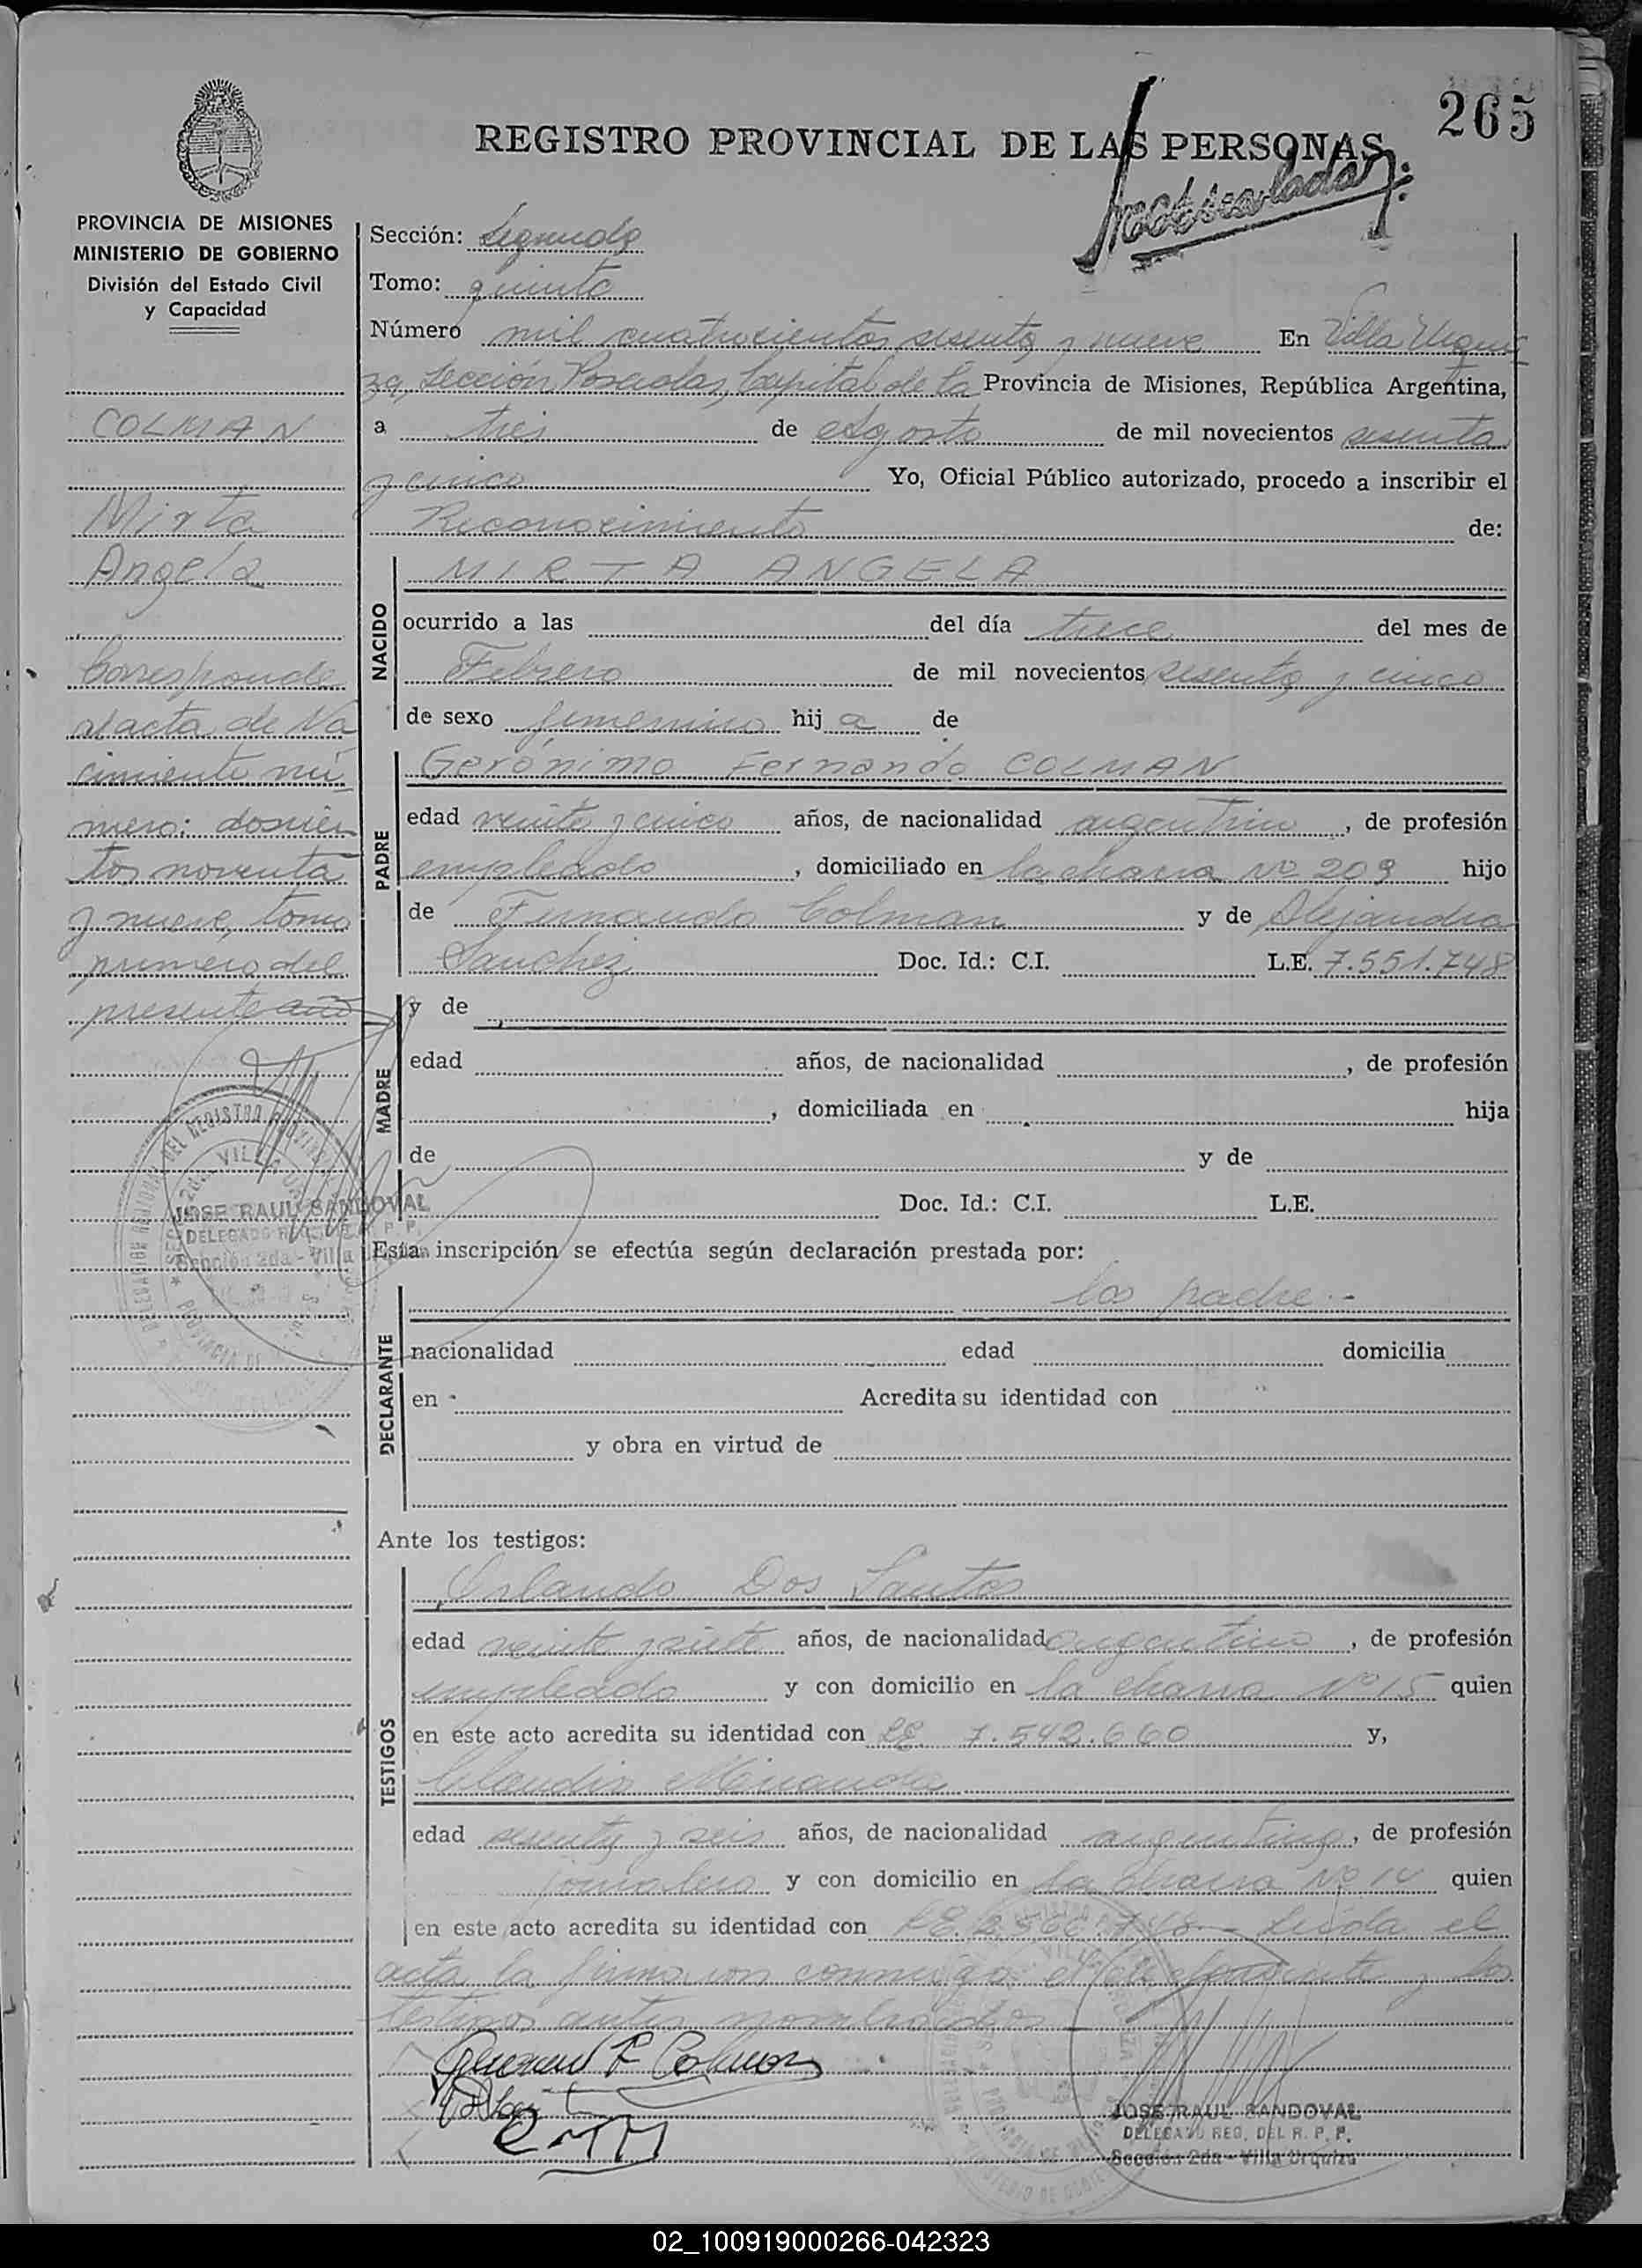 265
REGISTRO PROVINCIAL DE LAS PERSONAS
PROVINCIA DE MISIONES
MINISTERIO DE GOBIERNO
División del Estado Civil
y Capacidad
COLMAN
Mirta
Angela
Corresponde
al acta de Na
cimiento nú
mero: doscien
tos noventa
y nueve, tomo
primero del
presente año
JOSE RAUL SANDOVAL
DELEGADO
Sección 2da - Villa
Sección: Segunda
Tomo: quinto
Número mil cuatrocientos sesenta y nueve En Villa Urqui
za, Sección Posadas, Capital de la Provincia de Misiones, República Argentina,
a tres de Agosto de mil novecientos sesenta
y cinco Yo, Oficial Público autorizado, procedo a inscribir el
Reconocimiento de:
NACIDO
MIRTA ANGELA
ocurrido a las del día trece del mes de
Febrero de mil novecientos sesenta y cinco
de sexo femenino hij a de
PADRE
Gerónimo Fernando COLMAN
edad veinte y cinco años, de nacionalidad argentino, de profesión
empleado, domiciliado en la chacra Nº 209 hijo
de Fernando Colman y de Alejandra
Sanchez Doc. Id.: C.I. L.E. 7.551.748
MADRE
y de
edad años, de nacionalidad , de profesión
, domiciliada en hija
de y de
Doc. Id.: C.I. L.E.
Esta inscripción se efectúa según declaración prestada por:
DECLARANTE
padre.-
nacionalidad edad domicilia
en Acredita su identidad con
y obra en virtud de
Ante los testigos:
TESTIGOS
Orlando Dos Santos
edad veinte y siete años, de nacionalidad argentino, de profesión
empleado y con domicilio en la chacra Nº 15 quien
en este acto acredita su identidad con LE. 7.542.660 y,
Claudio Miranda
edad sesenta y seis años, de nacionalidad argentino, de profesión
jornalero y con domicilio en la chacra Nº 14 quien
en este acto acredita su identidad con LE. Leída el
acta la firmaron conmigo el y los
testigos antes nombrados
F Colman
JOSE RAUL SANDOVAL
DELEGADO REG. DEL R. P. P.
Sección 2da - Villa Urquiza
02_100919000266-042323